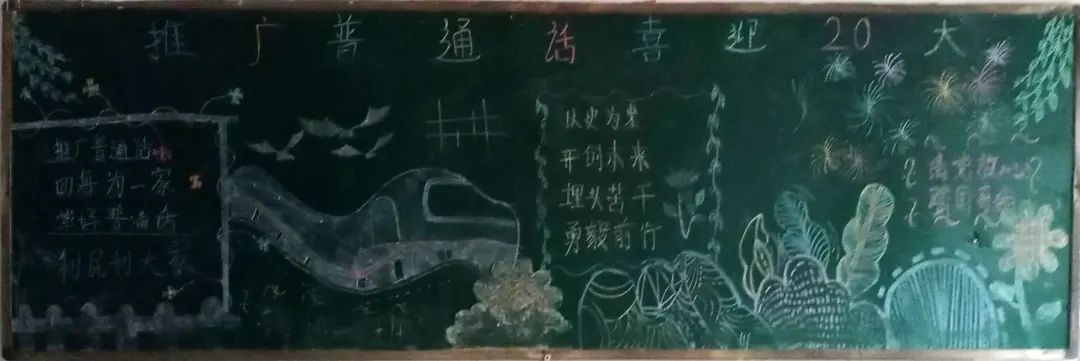 推广普通话喜迎20大
推广普通话
四海为一家
学好普通话
利民利大家
以史为鉴
开创未来
埋头苦干
勇毅前行